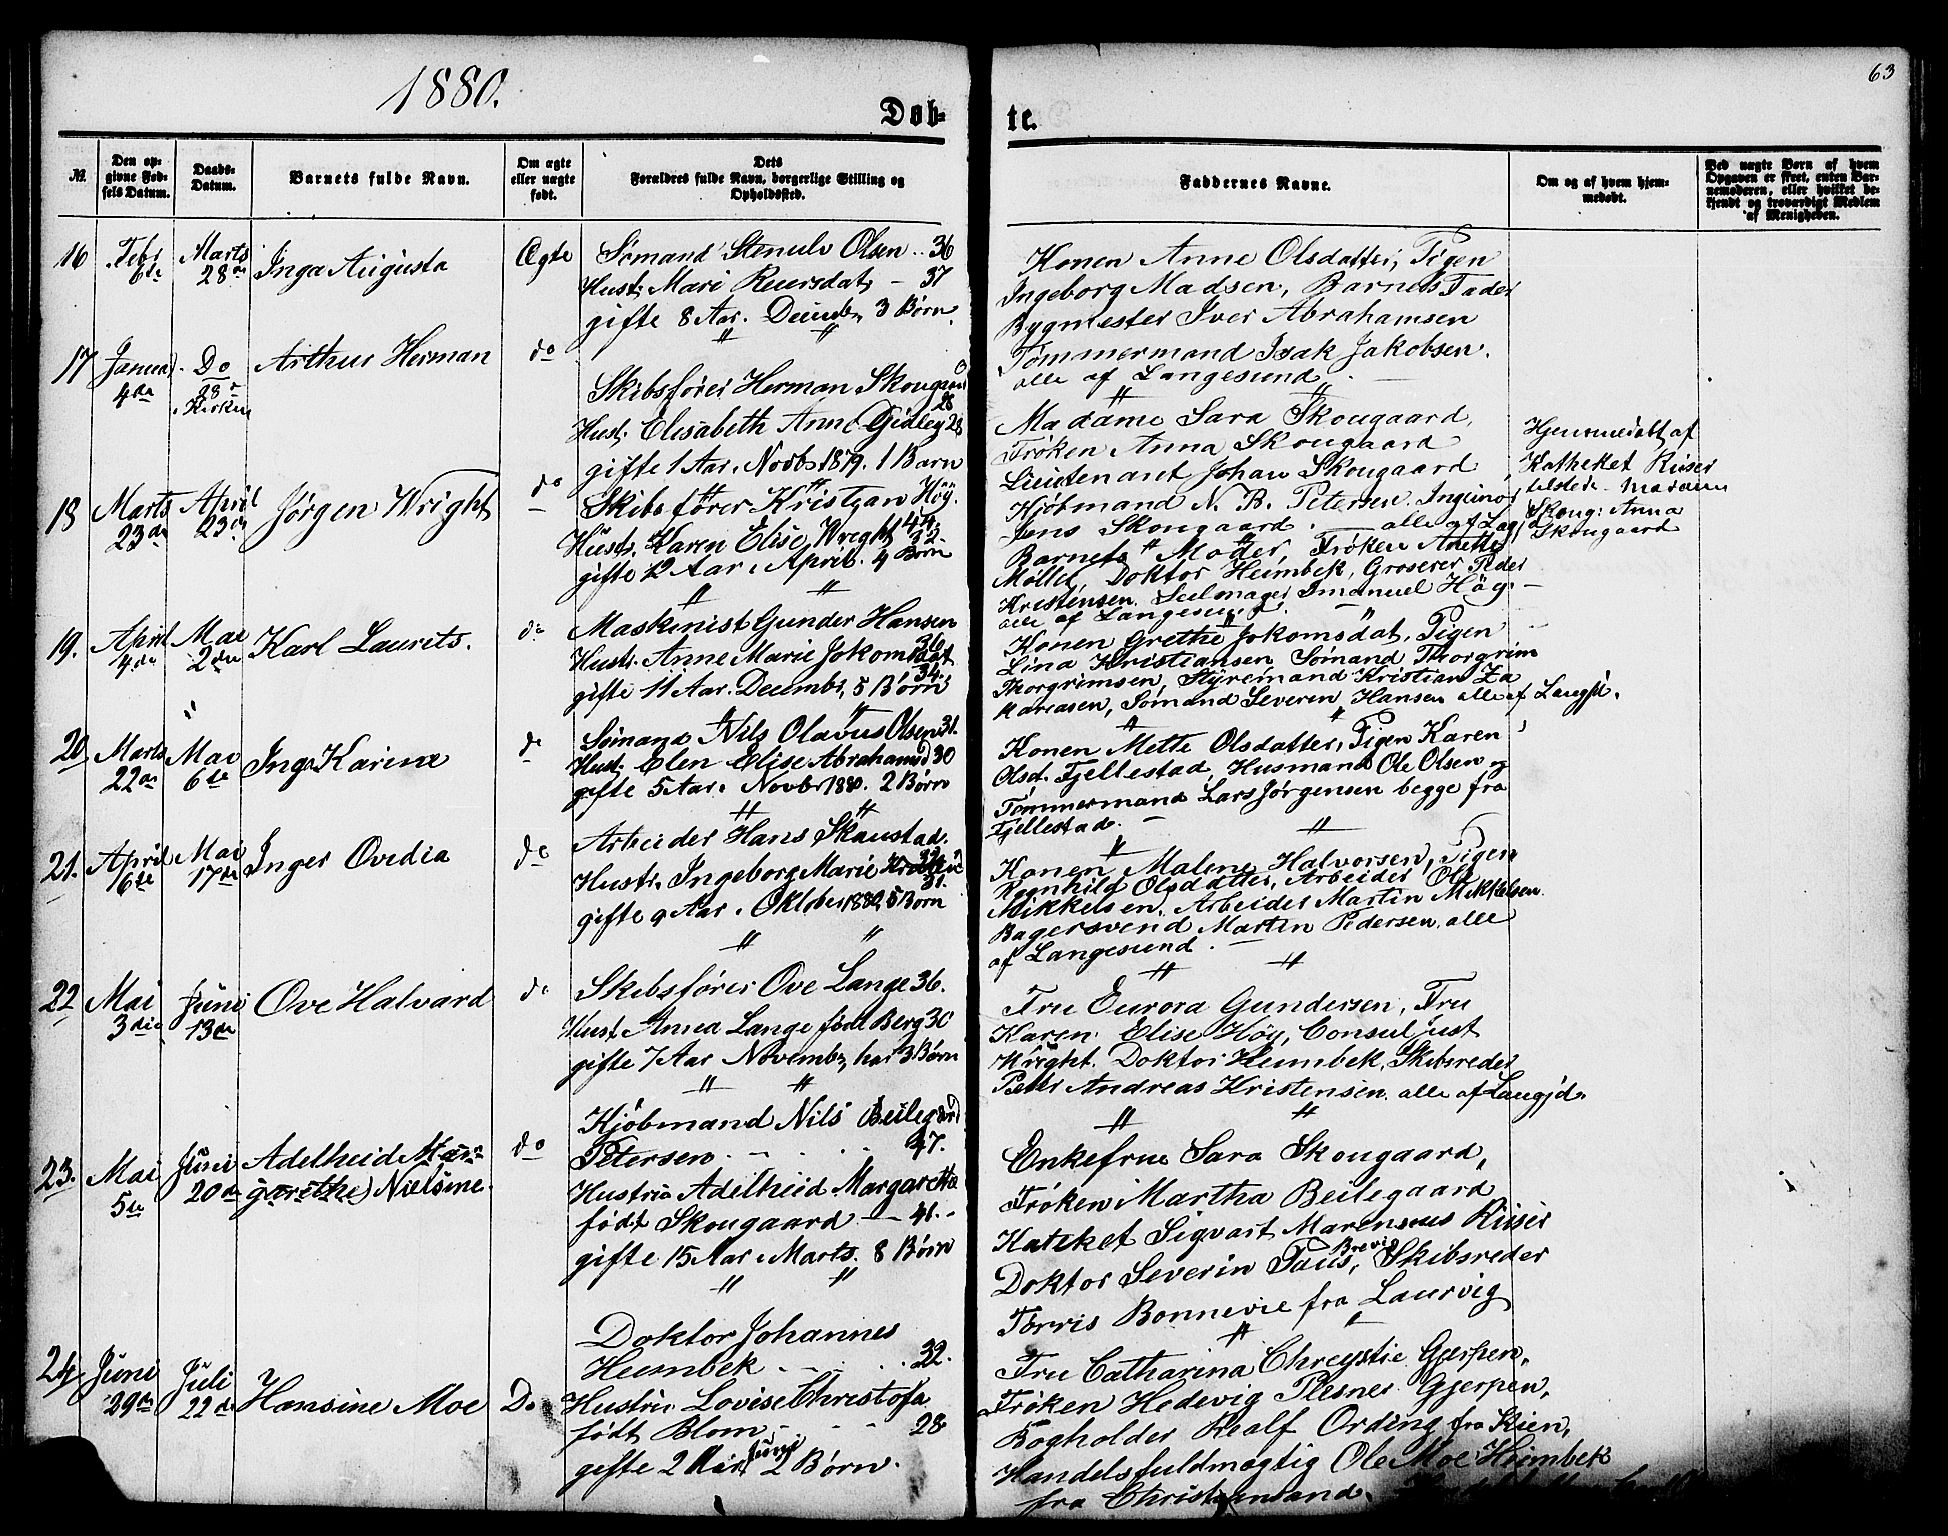 1880.
63
Døb-
te.
№
Den op-
givne Fød-
sels Datum.
Daabs-
Datum.
Barnets fulde Navn.
Om ægte
eller uægte
født.
Dets
Forældres fulde Navn, borgerlige Stilling og
Opholdssted.
Faddernes Navne.
Om og af hvem hjem-
medøbt.
Ved uægte Børn af hvem
Opgaven er skeet, enten Bar-
nemoderen, eller hvilket be-
kjendt og troværdigt Medlem
af Menigheden.
16 Febr 6te Marts 28de Inga Augusta Ægte
Sømand Stenulv Olsen .. 36
Hust: Mari Reiersdat, — 37
gifte 8 Aar. Decmbr, 3 Børn
Konen Anne Olsdatter, Pigen
Ingeborg Madsen, Barnets Fader
Bygmester Iver Abrahamsen
Tømmermand Isak Jakobsen.
alle af Langesund
17 Januar 4de Do 28 i Kirken Arthur Herman do
Skibsfører Herman Skougaard
28
Hust: Elisabeth Ann Gidley 28
gifte 1 Aar i Novbr 1879. 1 Barn
Madame Sara Skougaard,
Frøken Anna Skougaard
Lieutenant Johan Skougaard
Kjøbmand N. B. Petersen. Ingeniør
Jens Skougaard. — alle af Lag
Hjemmedøbt af
Katheket Riiser
tilstede. Madame
Skoug: Anna
Skougaard
18 Marts 23de April 23de Jørgen Wright do
Skibsfører Kristjan Høy.
44
Hustr. Karen Elise Wright 32
gifte 12 Aar i April. 4 Børn
Barnets Moder, Frøken Anette
Møller, Doktor Heimbek, Groserer Peder
Kristensen. Seilmager Imanuel Høy.
alle af Langesund.
19. April 4de Mai 2den Karl Laurits. do
Maskinist Gunder Hansen
36
Hustr. Anne Marie Jokomsdat
34.
gifte 11 Aar. Decembr, 5 Børn
Konen Grethe Jokomsdat, Pigen
Lina Kristiansen Sømand Thorgrim
Thorgrimsen, Styremand Kristian Za
kariasen, Sømand Severin Hansen alle af Langsd.
20 Marts 22de Mai 6te Inga Karine do
Sømand Nils Olavus Olsen 31.
Hust: Elen Elise Abrahamsd 30
gifte 5 Aar i Novbr 1880. 2 Børn
Konen Mette Olsdatter, Pigen Karen
Olsd. Fjellestad, Husmand Ole Olsen og
Tømmermand Lars Jørgensen begge fra
Fjellestad.
21. April 16te Mai 17te Inger Ovedia do
Arbeider Hans Skaustad.
Hustr. Ingeborg Marie
31.
gifte 9 Aar i Oktober 1880, 5 Børn
Konen Malene Halvorsen, Pigen
Ragnhild Olsdatter, Arbeider Ole
Mikkelsen. Arbeider Martin Mikkelsen.
Bagersvend Martin Pedersen. alle
af Langesund.
22 Mai 3die Juni 13de Ove Halvard do
Skibsfører Ove Lange 36.
Hust. Anna Lange født Berg 30
gifte 7 Aar Novembr, har 3 Børn
Fru Eurora Gundersen, Fru
Karen Elise Høy, Consul Just
Wright. Doktor Heimbek, Skibsreder
Peter Andreas Kristensen. alle af Langsd.
23. Mai 5te Juni 20de Adelheid Mar-
garethe Nielsine. do
Kjøbmand Nils Beilegaard
Petersen 47.
Hustru Adelheid Margaretha
født Skougaard — 41.
gifte 15 Aar i Marts. 8 Børn
Enkefrue Sara Skougaard,
Frøken Martha Beilegaard
Kateket Sigvart Riiser
Doktor Severin Paus, Brevig Skibsreder
Tørris Bonnevie fra Laurvig
24 Juni 29de Juli 22de Hansine Moe Do
Doktor Johannes
Heimbek 32.
Hustru Lovise Christofa
født Blom 28
gifte 2 Aar Juni 2 Børn.
Fru Catharina Chrystie Gjerpen.
Frøken Hedevig Plesner Gjerpen,
Bogholder Realf Ording fra Skien,
Handelsfuldmægtig Ole Moe Heimbek
fra Christiansand.